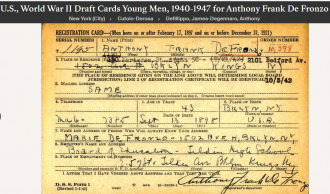 U.S., World War II Draft Cards Young Men, 1940-1947 for Anthony Frank De Fronzo
New York (City) › Cutolo-Derosa › Defillippo, James-Degennaro, Anthony
REGISTRATION CARD—(Men born on or after February 17, 1897 and on or before December 31, 1921)
SERIAL NUMBER 1. NAME (Print) ORDER NUMBER
ANTHONY FRANK DE FRONZO 10,598
2. PLACE OF RESIDENCE (Print) 2101 Bedford Av.
KINGS
[THE PLACE OF RESIDENCE GIVEN ON THE LINE ABOVE WILL DETERMINE LOCAL BOARD
JURISDICTION; LINE 2 OF REGISTRATION CERTIFICATE WILL BE IDENTICAL] 10/5/42
3. MAILING ADDRESS
SAME
4. TELEPHONE 5. AGE IN YEARS 6. PLACE OF BIRTH
43 BKLYN N.Y.
Sept 13 1898 U.S.A.
7. NAME AND ADDRESS OF PERSON WHO WILL ALWAYS KNOW YOUR ADDRESS
MARIE DE FRONZO - 1502 AVE H, BKLYN N.Y.
8. EMPLOYER'S NAME AND ADDRESS
Board of Education - Tilden High School
9. PLACE OF EMPLOYMENT OR BUSINESS
Tilden Ave Bklyn Kings
I AFFIRM THAT I HAVE VERIFIED ABOVE ANSWERS AND THAT THEY ARE TRUE.
D. S. S. Form 1
Anthony Frank De Fronzo